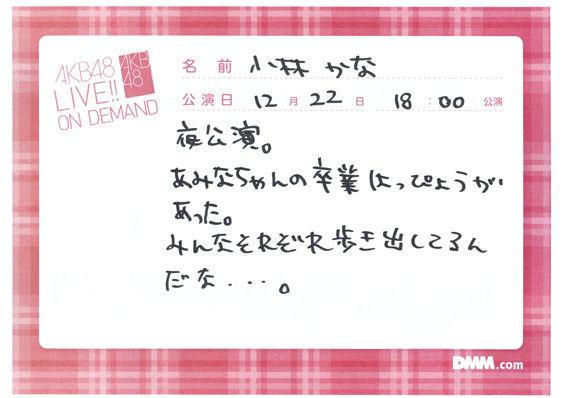 AKB48
LIVE!!
ON DEMAND
AKB
48
名前 小林 かな
公演日 12月 22日 18:00 公演
夜公演。
あみなちゃんの卒業はっぴょうが
あった。
みんなそれぞれ歩き出してるん
だな・・・。
DMM.com